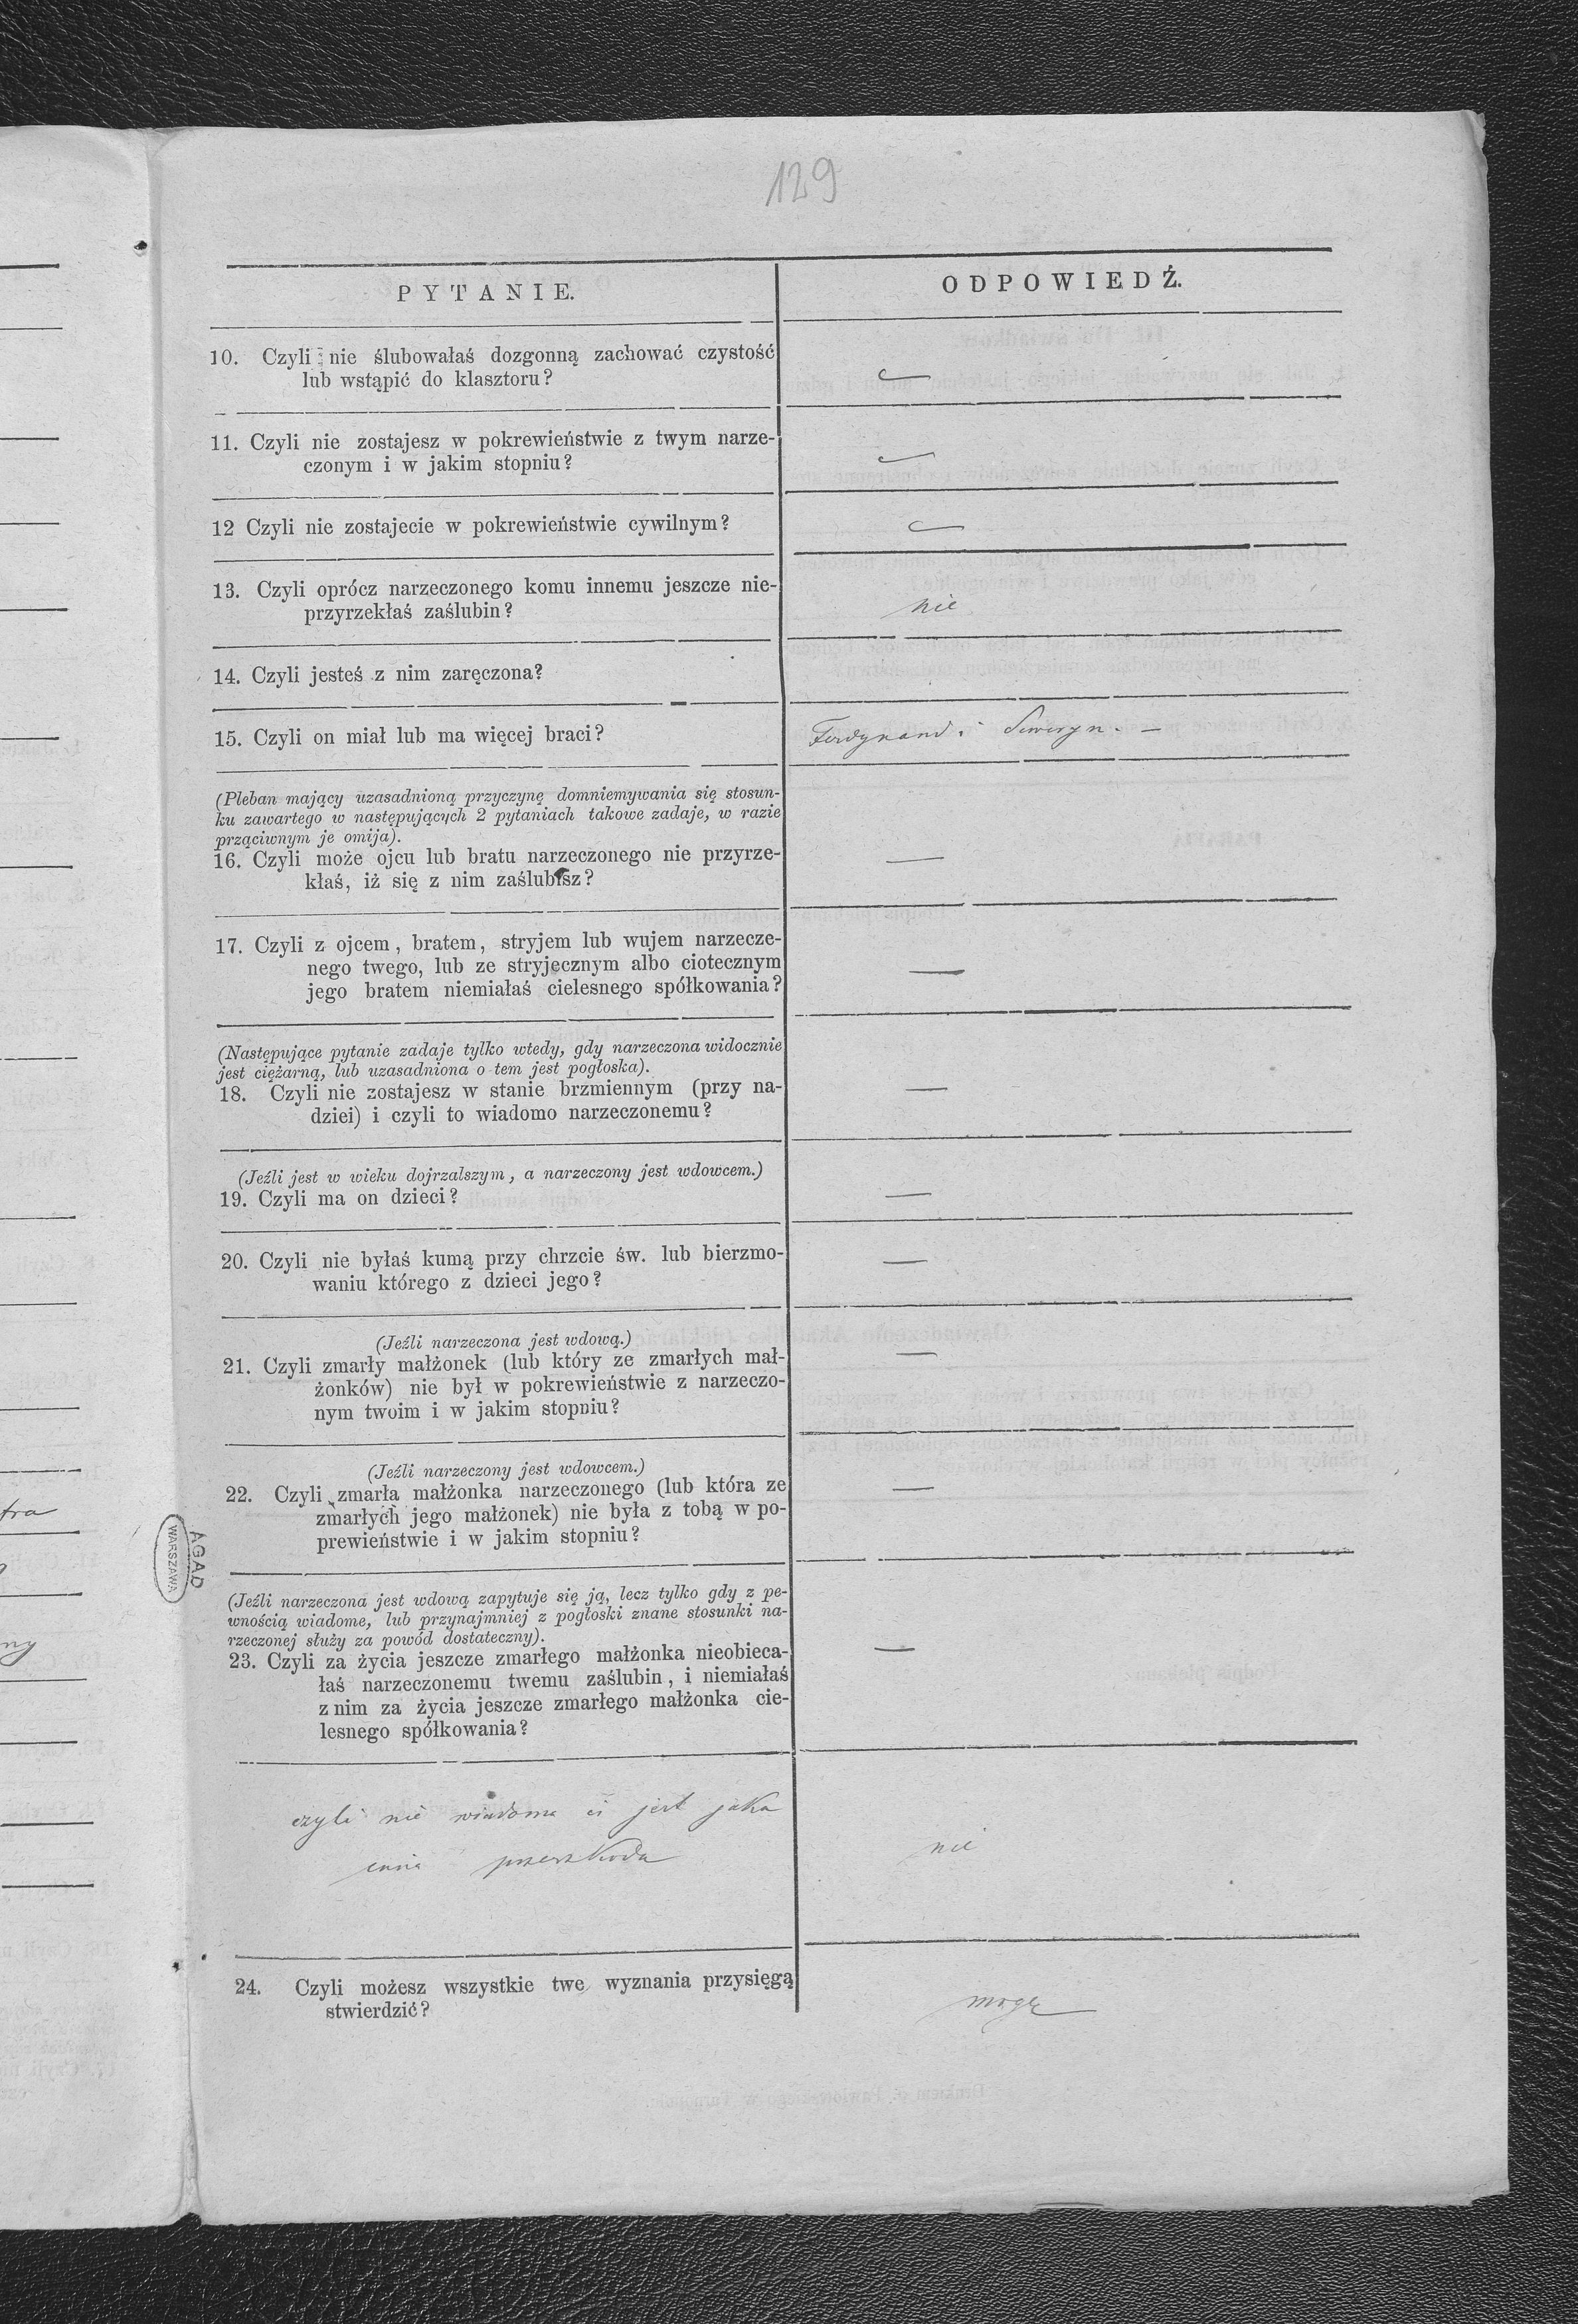 129
PYTANIE.
ODPOWIEDŹ.
10. Czyli nie ślubowałaś dozgonną zachować czystość
lub wstąpić do klasztoru?
11. Czyli nie zostajesz w pokrewieństwie z twym narze-
czonym i w jakim stopniu?
12 Czyli nie zostajecie w pokrewieństwie cywilnym?
13. Czyli oprócz narzeczonego komu innemu jeszcze nie-
przyrzekłaś zaślubin?
nie
14. Czyli jesteś z nim zaręczona?
15. Czyli on miał lub ma więcej braci?
Ferdynand i Seweryn. —
(Pleban mający uzasadnioną przyczynę domniemywania się stosun-
ku zawartego w następujących 2 pytaniach takowe zadaje, w razie
prząciwnym je omija).
16. Czyli może ojcu lub bratu narzeczonego nie przyrze-
kłaś, iż się z nim zaślubisz?
—
17. Czyli z ojcem, bratem, stryjem lub wujem narzecze-
nego twego, lub ze stryjecznym albo ciotecznym
jego bratem niemiałaś cielesnego spółkowania?
—
(Następujące pytanie zadaje tylko wtedy, gdy narzeczona widocznie
jest ciężarną, lub uzasadniona o tem jest pogłoska).
18. Czyli nie zostajesz w stanie brzmiennym (przy na-
dziei) i czyli to wiadomo narzeczonemu?
—
(Jeźli jest w wieku dojrzalszym, a narzeczony jest wdowcem.)
19. Czyli ma on dzieci?
—
20. Czyli nie byłaś kumą przy chrzcie św. lub bierzmo-
waniu którego z dzieci jego?
—
(Jeźli narzeczona jest wdową.)
21. Czyli zmarły małżonek (lub który ze zmarłych mał-
żonków) nie był w pokrewieństwie z narzeczo-
nym twoim i w jakim stopniu?
—
(Jeźli narzeczony jest wdowcem.)
22. Czyli zmarła małżonka narzeczonego (lub która ze
zmarłych jego małżonek) nie była z tobą w po-
prewieństwie i w jakim stopniu?
—
(Jeźli narzeczona jest wdową zapytuje się ją, lecz tylko gdy z pe-
wnością wiadome, lub przynajmniej z pogłoski znane stosunki na-
rzeczonej służy za powód dostateczny).
23. Czyli za życia jeszcze zmarłego małżonka nieobieca-
łaś narzeczonemu twemu zaślubin, i niemiałaś
z nim za życia jeszcze zmarłego małżonka cie-
lesnego spółkowania?
—
czyli nie wiadoma ci jest jaka
inna przeszkoda
nie
24. Czyli możesz wszystkie twe wyznania przysięgą
stwierdzić?
mogę
AGAD
WARSZAWA